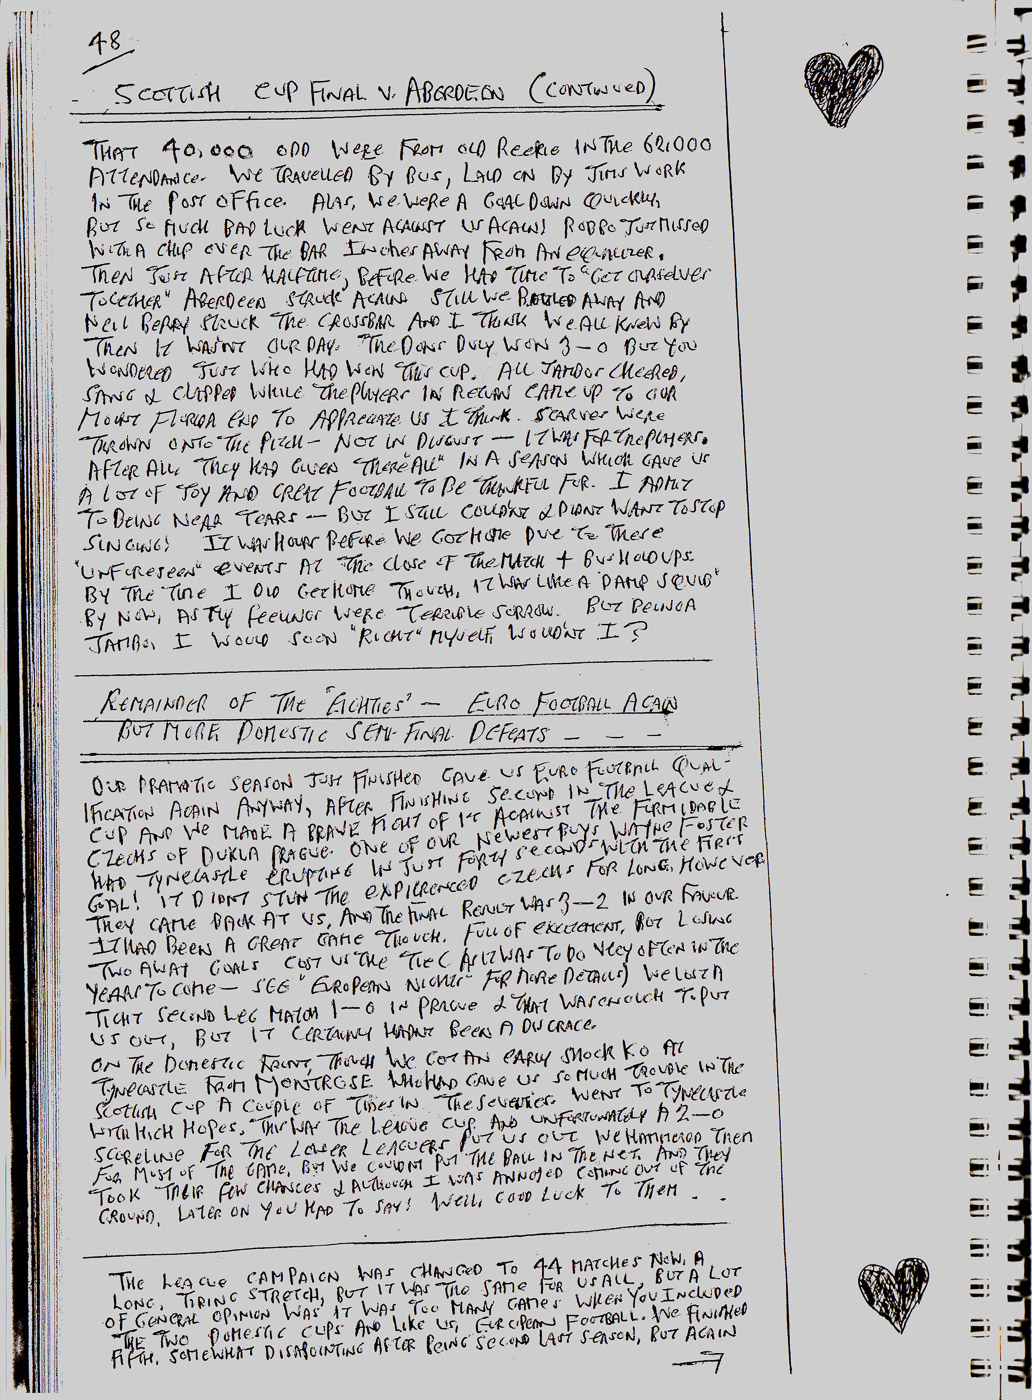 48
SCOTTISH CUP FINAL V. ABERDEEN (CONTINUED)
THAT 40,000 ODD WERE FROM OLD REEKIE IN THE 62,000
ATTENDANCE. WE TRAVELLED BY BUS, LAID ON BY JIMS WORK
IN THE POST OFFICE. ALAS, WE WERE A GOAL DOWN QUICKLY,
BUT SO MUCH BAD LUCK WENT AGAINST US AGAIN! ROBBO JUST MISSED
WITH A CHIP OVER THE BAR INCHES AWAY FROM AN EQUALIZER.
THEN JUST AFTER HALFTIME, BEFORE WE HAD TIME TO "GET OURSELVES
TOGETHER" ABERDEEN STRUCK AGAIN. STILL WE BATTLED AWAY AND
NEIL BERRY STRUCK THE CROSSBAR AND I THINK WE ALL KNEW BY
THEN IT WASNT OUR DAY. THE DONS DULY WON 3-0 BUT YOU
WONDERED JUST WHO HAD WON THIS CUP. ALL JAMBOS CHEERED,
SANG & CLAPPED WHILE THE PLAYERS IN RETURN CAME UP TO OUR
MOUNT FLORIDA END TO APPRECIATE US I THINK. SCARVES WERE
THROWN ONTO THE PITCH - NOT IN DISGUST - IT WAS FOR THE PLAYERS.
AFTER ALL THEY HAD GIVEN THERE "ALL" IN A SEASON WHICH GAVE US
A LOT OF JOY AND GREAT FOOTBALL TO BE THANKFUL FOR. I ADMIT
TO BEING NEAR TEARS - BUT I STILL COULDNT & DIDNT WANT TO STOP
SINGING! IT WAS HOURS BEFORE WE GOT HOME DUE TO THESE
"UNFORESEEN" EVENTS AT THE CLOSE OF THE MATCH + BUS HOLDUPS.
BY THE TIME I DID GET HOME THOUGH, IT WAS LIKE A "DAMP SQUIB"
BY NOW, AS MY FEELINGS WERE TERRIBLE SORROW. BUT BEING A
JAMBO, I WOULD SOON "RIGHT" MYSELF, WOULDNT I?
REMAINDER OF THE "EIGHTIES" - EURO FOOTBALL AGAIN
BUT MORE DOMESTIC SEMI-FINAL DEFEATS - - -
OUR DRAMATIC SEASON JUST FINISHED GAVE US EURO FOOTBALL QUAL-
IFICATION AGAIN ANYWAY, AFTER FINISHING SECOND IN THE LEAGUE &
CUP AND WE MADE A BRAVE FIGHT OF IT AGAINST THE FORMIDABLE
CZECHS OF DUKLA PRAGUE. ONE OF OUR NEWEST BUYS WAYNE FOSTER
HAD TYNECASTLE ERUPTING IN JUST FORTY SECONDS WITH THE FIRST
GOAL! IT DIDNT STUN THE EXPIERENCED CZECHS FOR LONG, HOWEVER
THEY CAME BACK AT US, AND THE FINAL RESULT WAS 3-2 IN OUR FAVOUR.
IT HAD BEEN A GREAT GAME THOUGH. FULL OF EXCITEMENT, BUT LOSING
TWO AWAY GOALS COST US THE TIE (AS IT WAS TO DO VERY OFTEN IN THE
YEARS TO COME - SEE "EUROPEAN NIGHTS" FOR MORE DETAILS) WE LOST A
TIGHT SECOND LEG MATCH 1-0 IN PRAGUE & THAT WAS ENOUGH TO PUT
US OUT, BUT IT CERTAINLY HADNT BEEN A DISGRACE.
ON THE DOMESTIC FRONT, THOUGH WE GOT AN EARLY SHOCK K.O AT
TYNECASTLE FROM MONTROSE WHO HAD GAVE US SO MUCH TROUBLE IN THE
SCOTTISH CUP A COUPLE OF TIMES IN THE SEVENTIES. WENT TO TYNECASTLE
WITH HIGH HOPES, THIS WAS THE LEAGUE CUP AND UNFORTUNATELY A 2-0
SCORELINE FOR THE LOWER LEAGUERS PUT US OUT. WE HAMMERED THEM
FOR MOST OF THE GAME, BUT WE COULDNT PUT THE BALL IN THE NET, AND THEY
TOOK THEIR FEW CHANCES & ALTHOUGH I WAS ANNOYED COMING OUT OF THE
GROUND, LATER ON YOU HAD TO SAY! WELL, GOOD LUCK TO THEM . .
THE LEAGUE CAMPAIGN WAS CHANGED TO 44 MATCHES NOW. A
LONG, TIRING STRETCH, BUT IT WAS THE SAME FOR US ALL, BUT A LOT
OF GENERAL OPINION WAS IT WAS TOO MANY GAMES WHEN YOU INCLUDED
THE TWO DOMESTIC CUPS AND LIKE US, EUROPEAN FOOTBALL. WE FINISHED
FIFTH, SOMEWHAT DISAPOINTING AFTER BEING SECOND LAST SEASON, BUT AGAIN